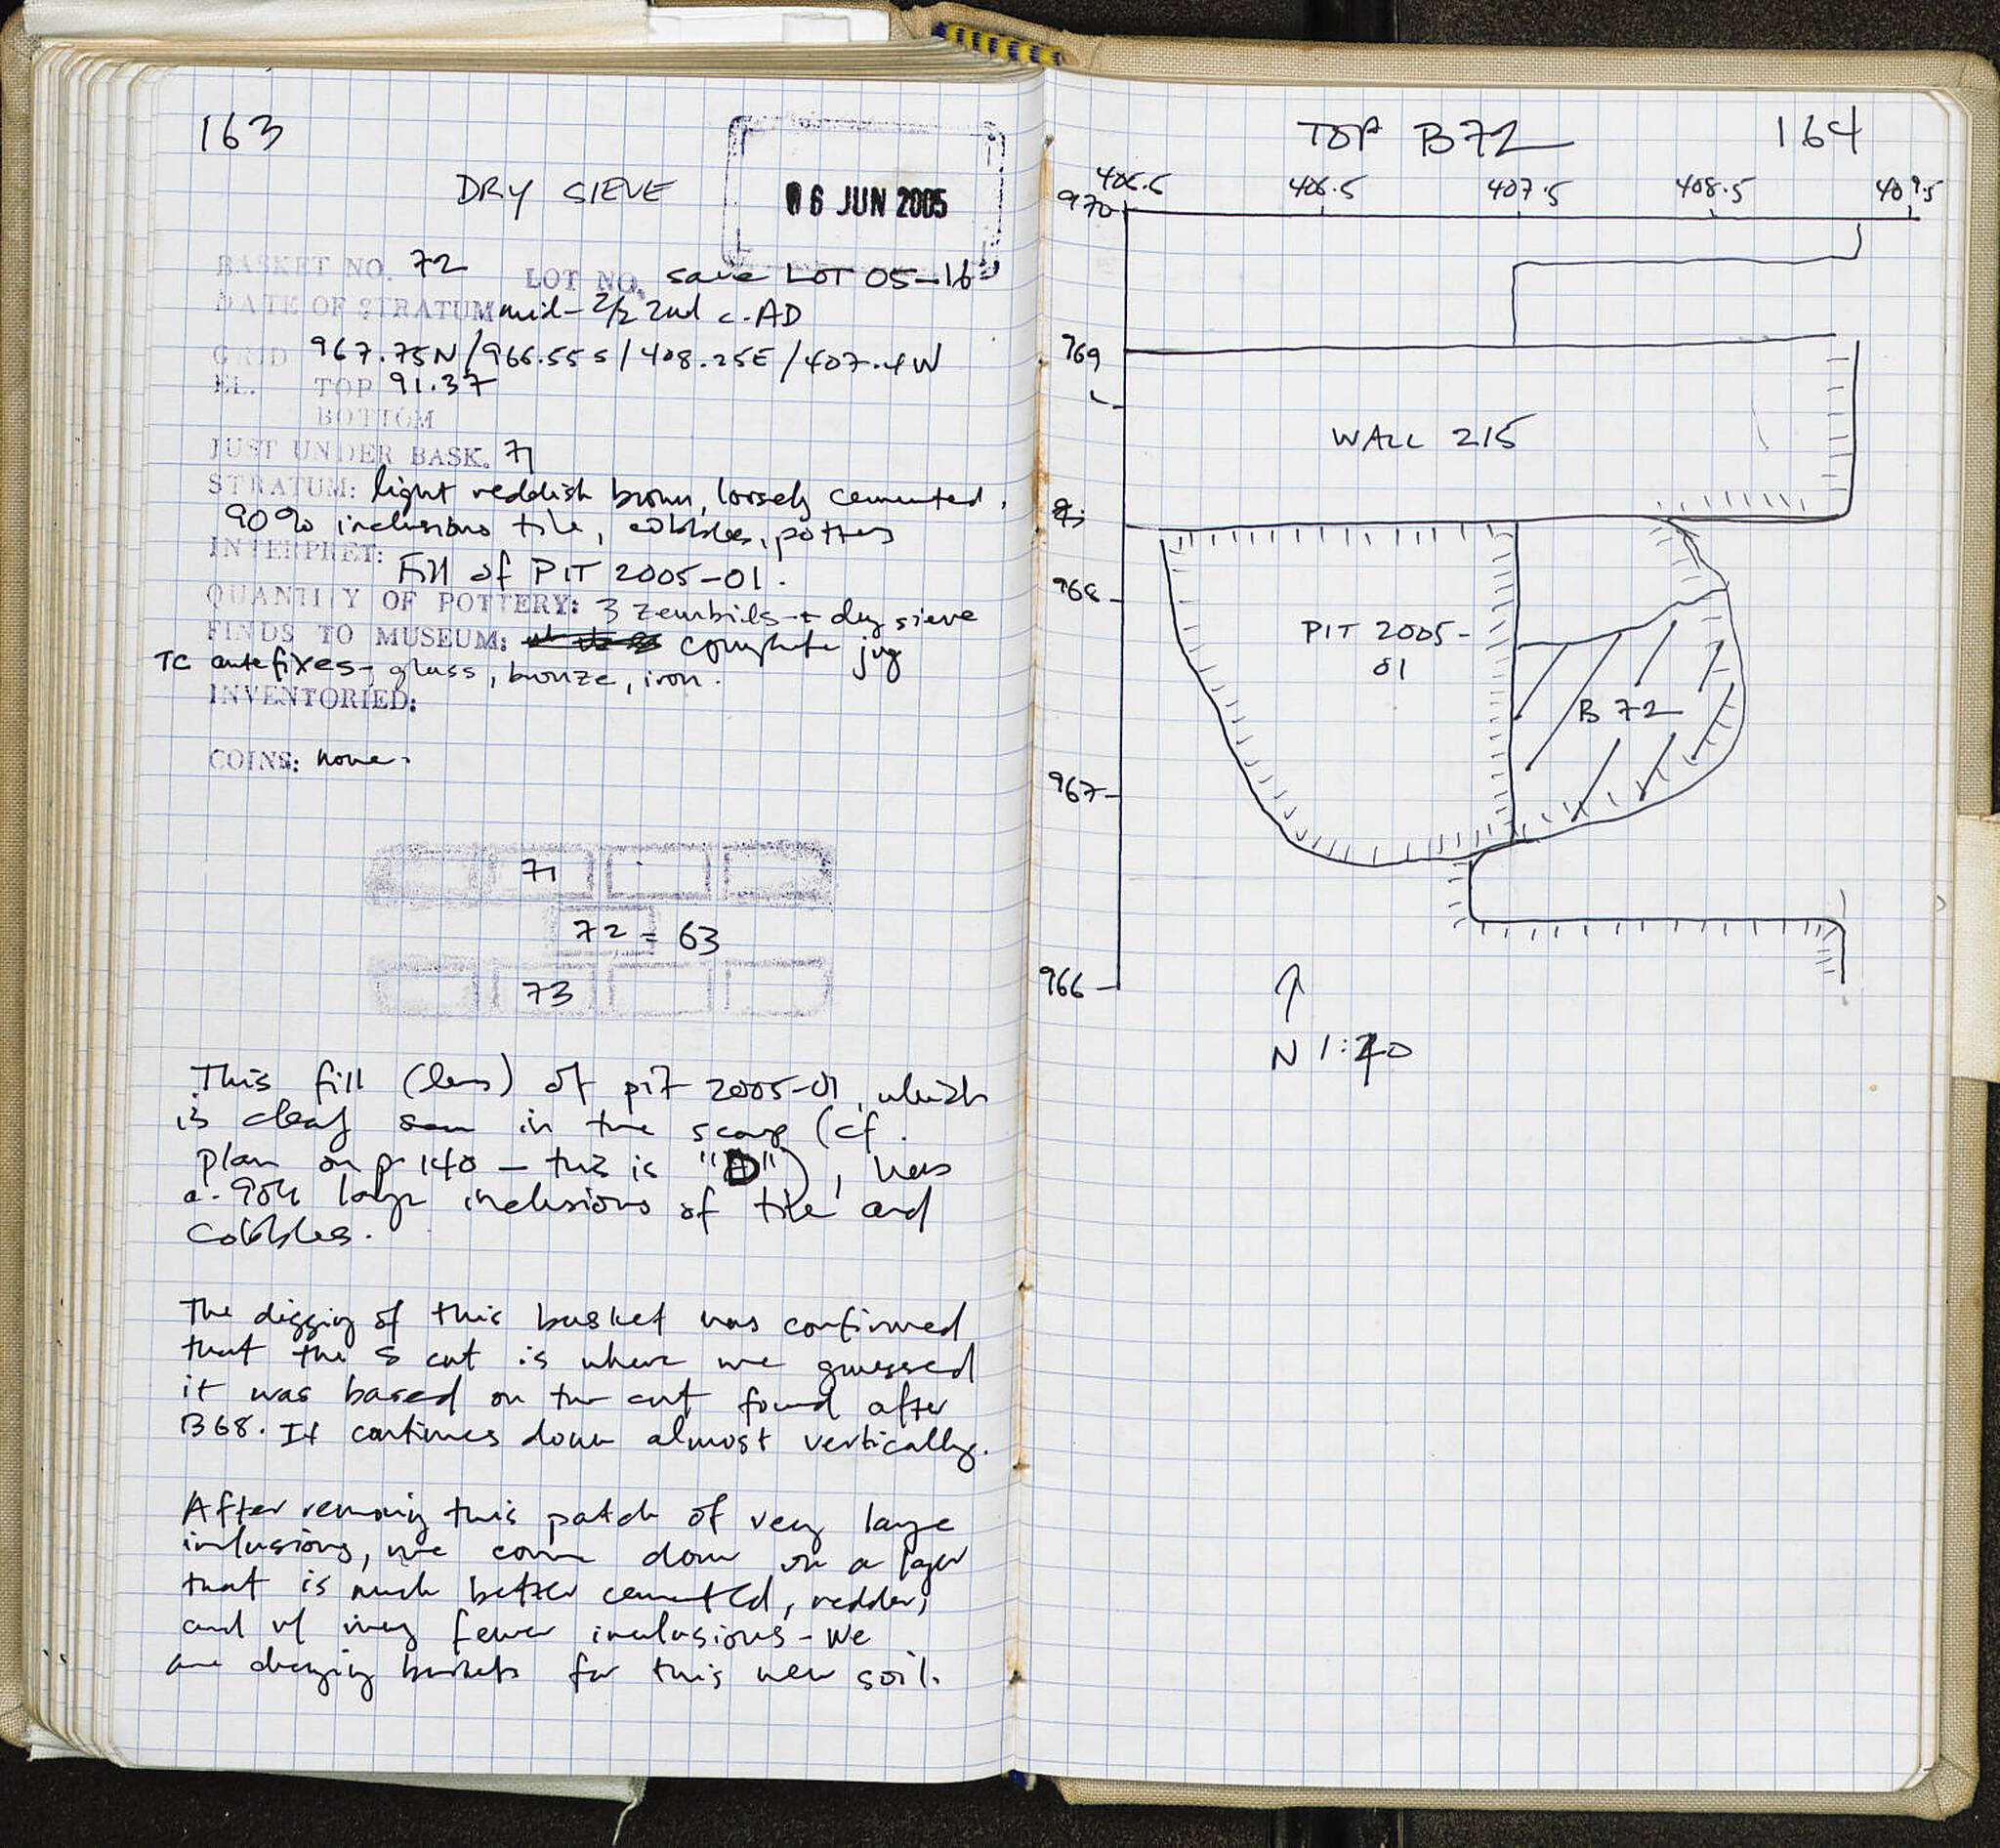 163
DRY SIEVE
06 JUN 2005
BASKET NO. 72 LOT NO. save LOT 05-16
DATE OF STRATUM mid-2/2 2nd c. AD
GRID 967.75N/966.55S/408.25E/407.4W
EL. TOP 91.37
BOTTOM
JUST UNDER BASK. 71
STRATUM: light reddish brown, loosely cemented,
90% inclusions tile, cobbles, pottery
INTERPRET: Fill of PIT 2005-01.
QUANTITY OF POTTERY: 3 zembils + dry sieve
FINDS TO MUSEUM: complete jug
TC antefixes, glass, bronze, iron.
INVENTORIED:
COINS: none.
71
72 = 63
73
This fill (lens) of pit 2005-01, which
is clearly seen in the scarp (cf.
plan on p. 140 – this is "D"), has
a. 90% large inclusions of tile and
cobbles.
The digging of this basket was confirmed
that the S cut is where we guessed
it was based on the cut found after
B68. It continues down almost vertically.
After removing this patch of very large
inclusions, we come down on a layer
that is much better cemented, redder,
and w/ very fewer inclusions - We
are changing baskets for this new soil.
TOP B72 164
406.5 407.5 408.5 409.5
970
969
WALL 215
968
PIT 2005-
01
B 72
967
966
N 1:20